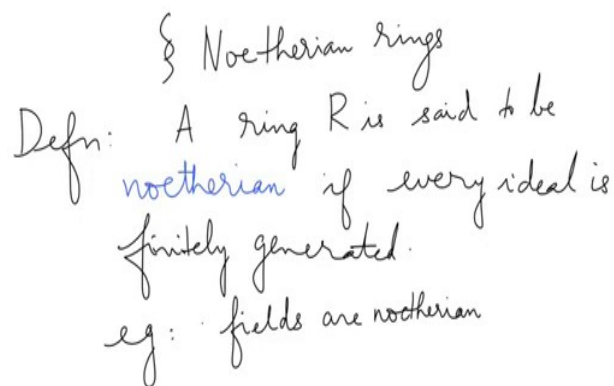 § Noetherian rings
Defn: A ring R is said to be
noetherian if every ideal is
finitely generated.
eg: · fields are noetherian